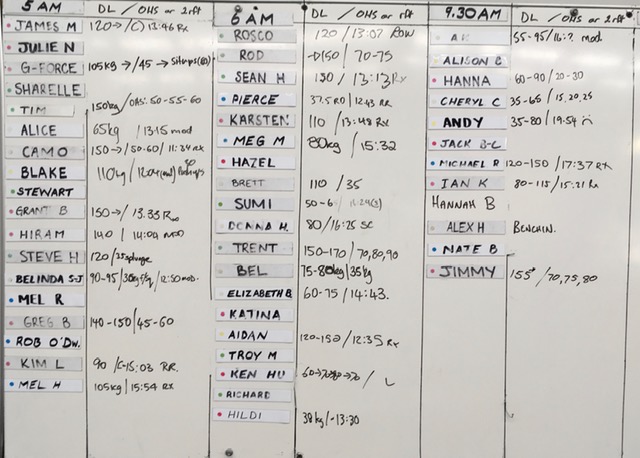 5 AM DL / OHS or 2rft
JAMES M 120→/(C) 12:46 Rx
JULIE N
G-FORCE 105kg→/45→
SHARELLE
TIM 150kg/OHS:50-55-60
ALICE 65kg / 13:15 mod
CAMO 150→/50-60/11:34 Rx
BLAKE 110kg/
STEWART
GRANT B 150→/ 13:33
HIRAM 140 / 14:04 mod
STEVE H 120/
BELINDA S-J 90-95/ /12:50 mod.
MEL R
GREG B 140-150/45-60
ROB O'DW.
KIM L 90 /C-15:03 RR.
MEL H 105kg/15:54 Rx
6 AM DL / OHS or rft
ROSCO 120 /13:07 Row
ROD /70-75
SEAN H 130 /13:13 Rx
PIERCE 37.5 RD /12:43 RR
KARSTEN 110 /13:48 Rx
MEG M 80kg /15:32
HAZEL
BRETT 110 /35
SUMI
DONNA H. 80/16:25 SC
TRENT 150-170 /70,80,90
BEL 75-80kg/35kg
ELIZABETH B 60-75 /14:43.
KATINA
AIDAN 120-150 /12:35 Rx
TROY M
KEN HU
RICHARD
HILDI 38kg/-13:30
9.30AM DL / OHS or 2rft
AK 55-95/16:? mod
ALISON C
HANNA 60-90 /20-30
CHERYL C 35-65 /15.20.25
ANDY 35-80 /19:54
JACK B-L
MICHAEL R 120-150 /17:37 Rx
IAN K 80-115/15:21 Rx
HANNAH B
ALEX H BENCHIN.
NATE B
JIMMY 155 /70,75,80